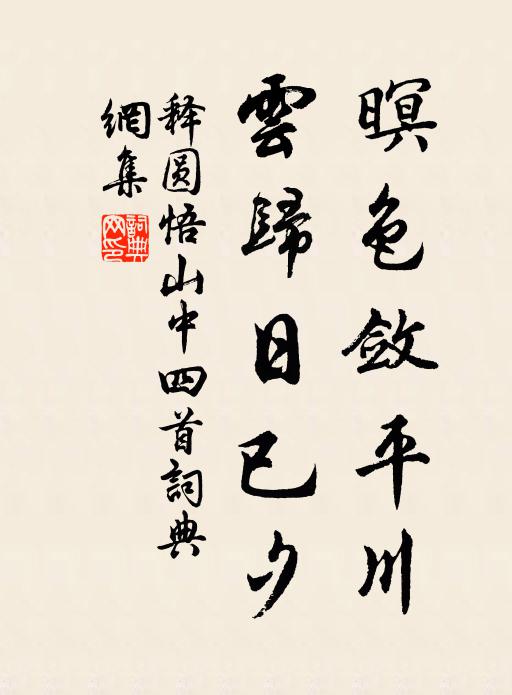 暝色斂平川
雲歸日已夕
释圆悟山中四首詞典
網集
詞典
网印